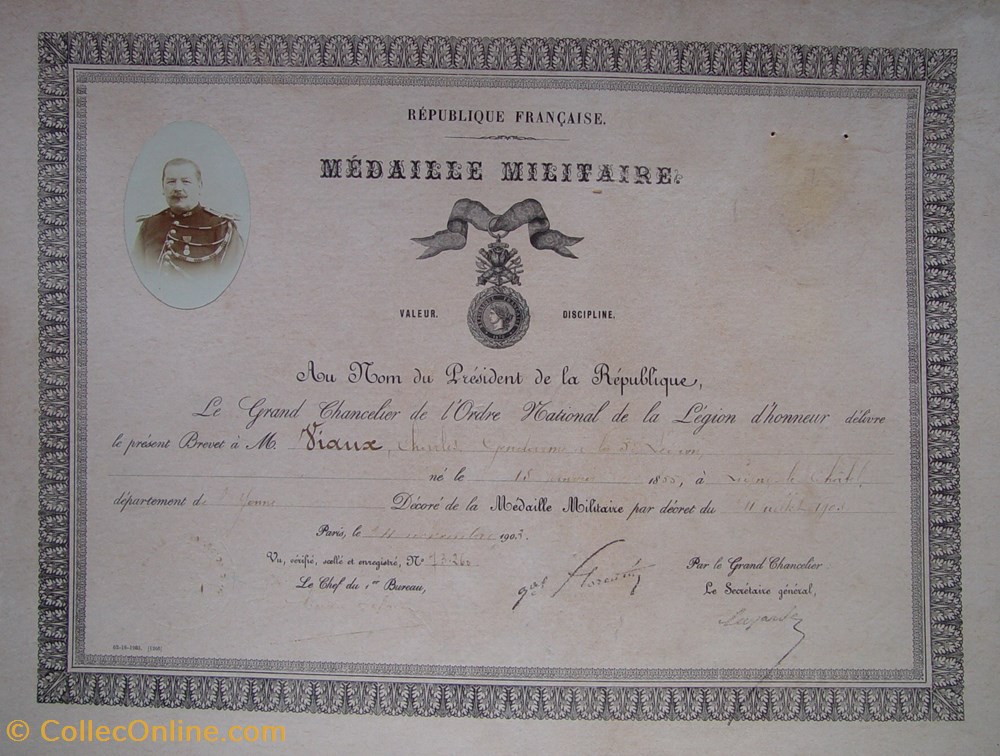 RÉPUBLIQUE FRANÇAISE.
MÉDAILLE MILITAIRE.
VALEUR. DISCIPLINE.
Au Nom du Président de la République,
Le Grand Chancelier de l'Ordre National de la Légion d'honneur délivre
le présent Brevet à M. Viaux, Charles Gendarme à la 5e Légion,
né le 15 1855, à Ligny-le-Châtel,
département de l'Yonne Décoré de la Médaille Militaire par décret du 11 juillet 1903
Paris, le 1903.
Vu, vérifié, scellé et enregistré, N° Par le Grand Chancelier
Le Chef du 1er Bureau, gal Florentin Le Secrétaire général,
© CollecOnline.com